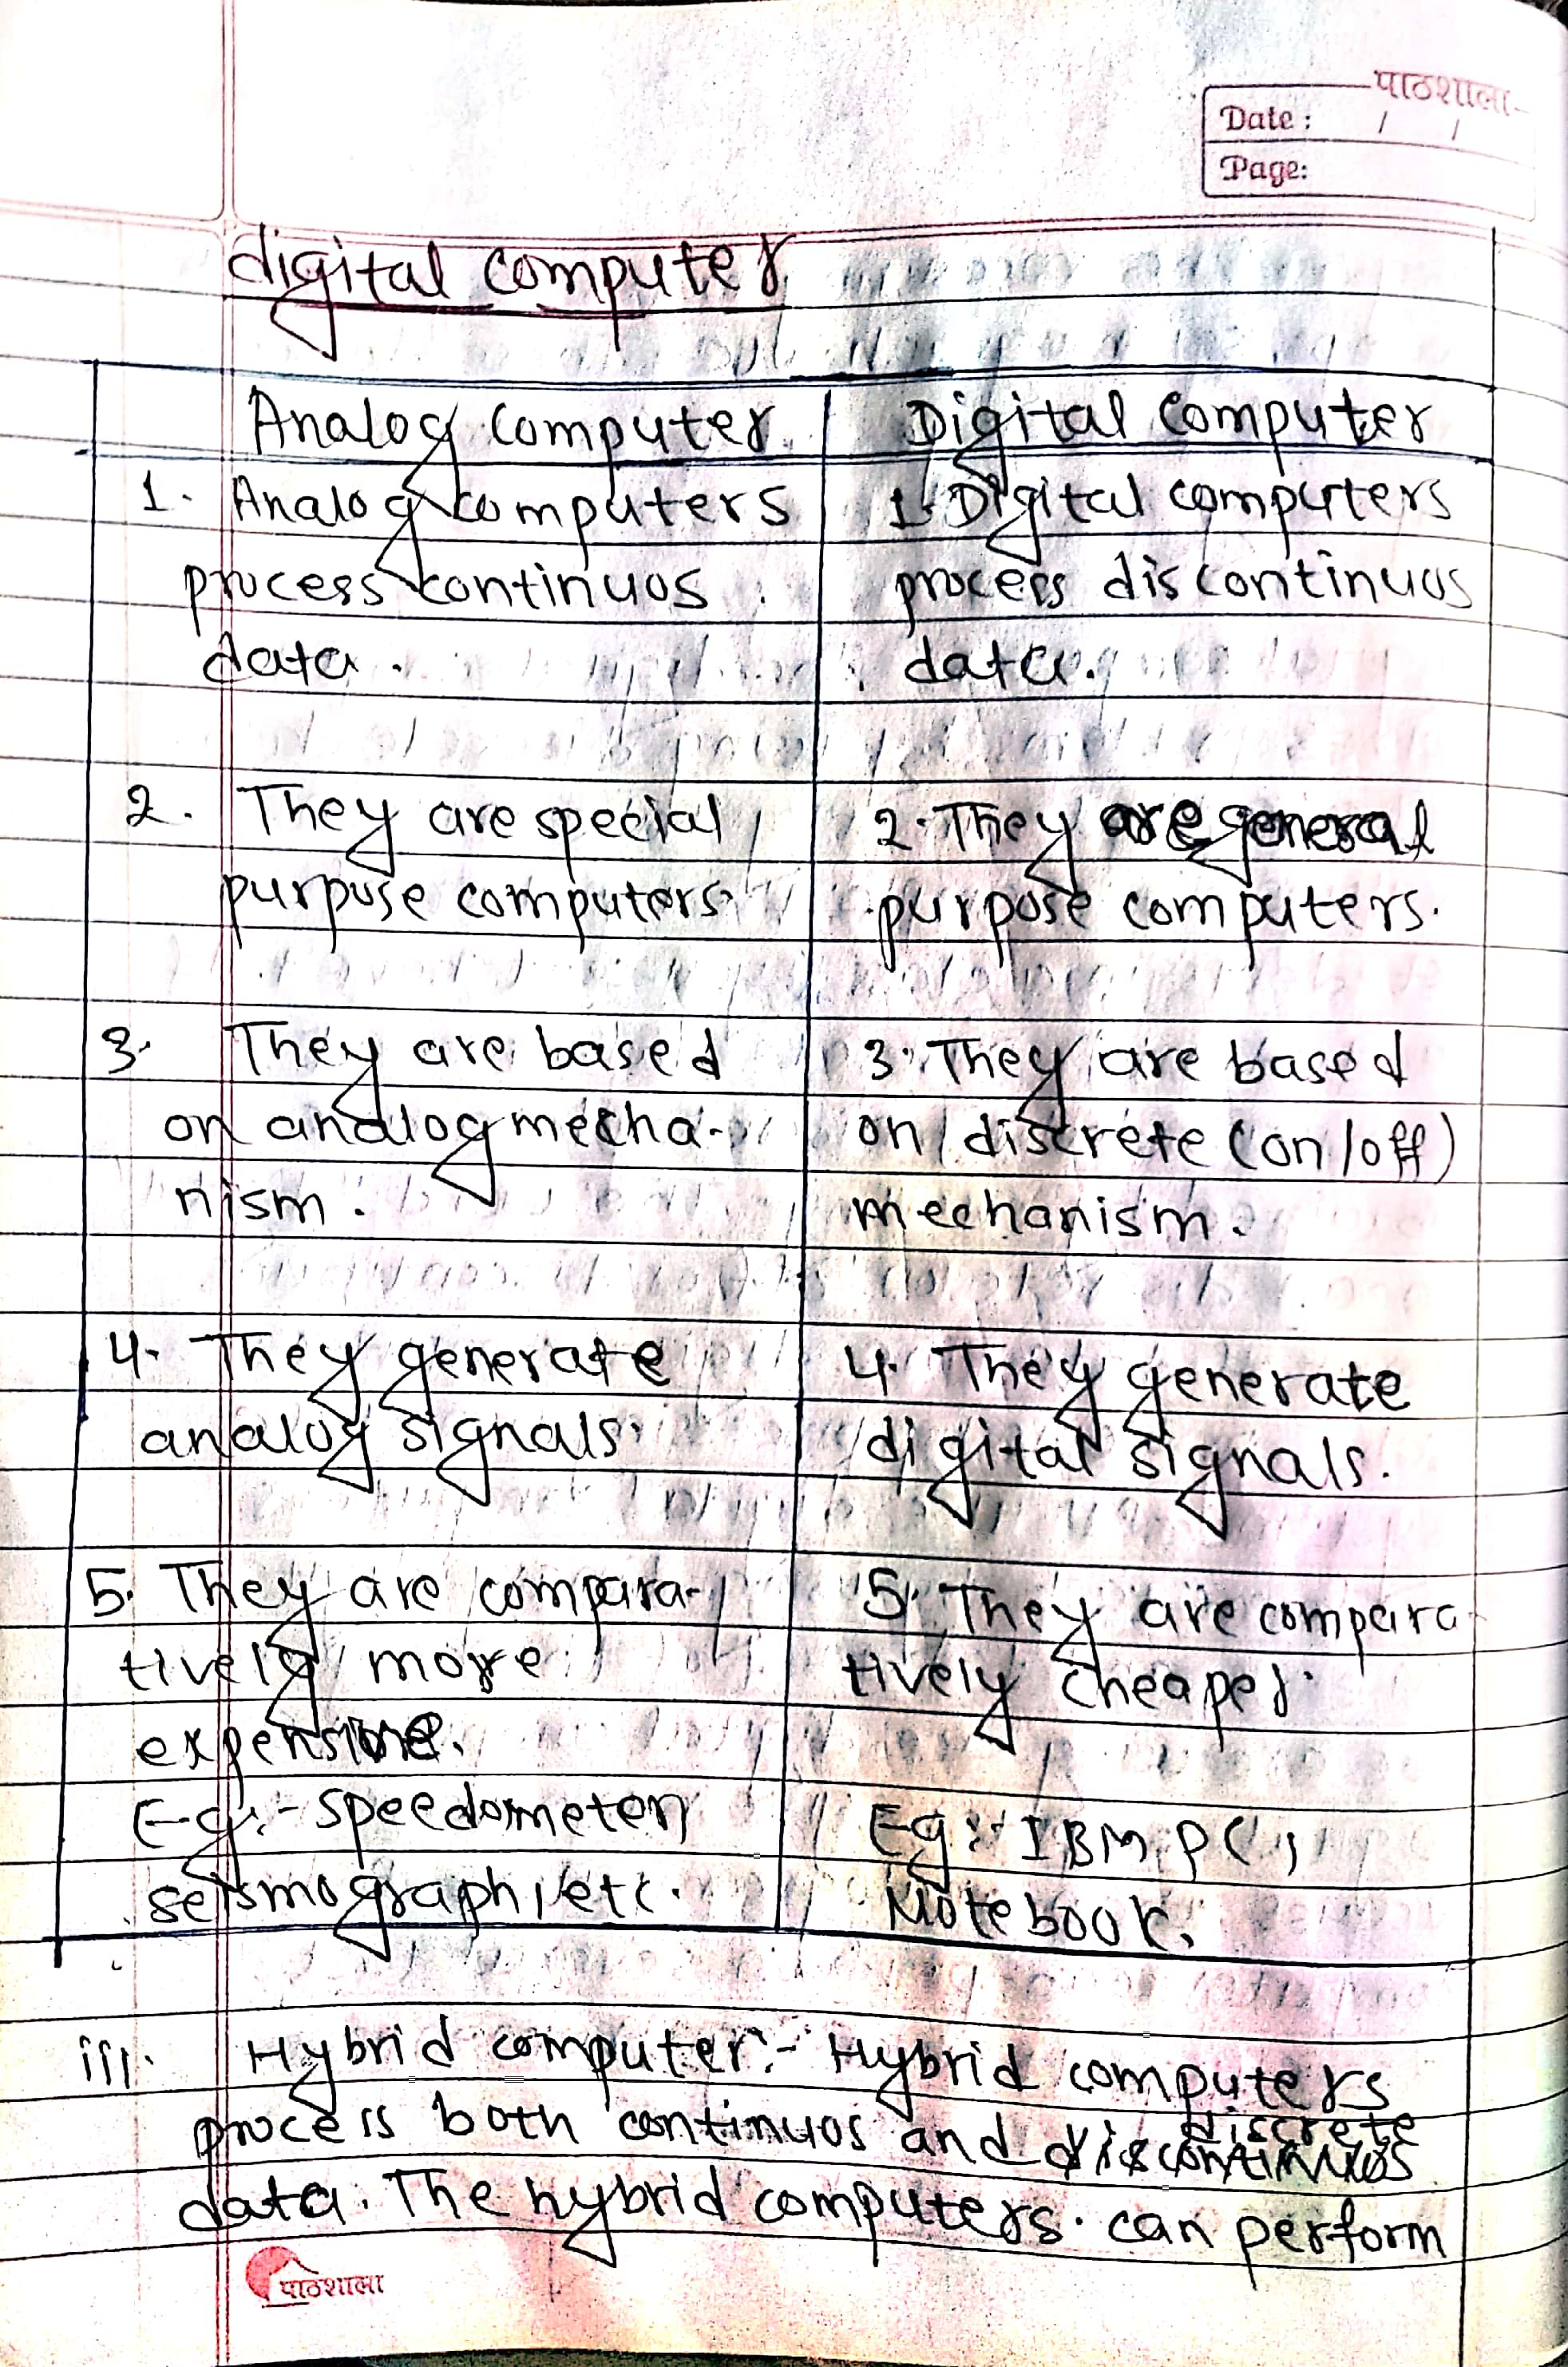 पाठशाला
Date : / /
Page:
digital computer
Analog computer
Digital computer
1. Analog computers
process continuos
data.
1. Digital computers
process discontinuos
data.
2. They are special
purpose computers.
2. They are general
purpose computers.
3. They are based
on analog mecha-
nism.
3. They are based
on discrete (on/off)
mechanism.
4. They generate
analog signals.
4. They generate
digital signals.
5. They are compara-
tively more
expensive.
E.g:- speedometer,
seismograph, etc.
5. They are compara
tively cheaper.
Eg:- IBM PC,
Notebook.
iii. Hybrid computer:- Hybrid computers
process both continuos and discontinuos discrete
data. The hybrid computers. can perform
पाठशाला